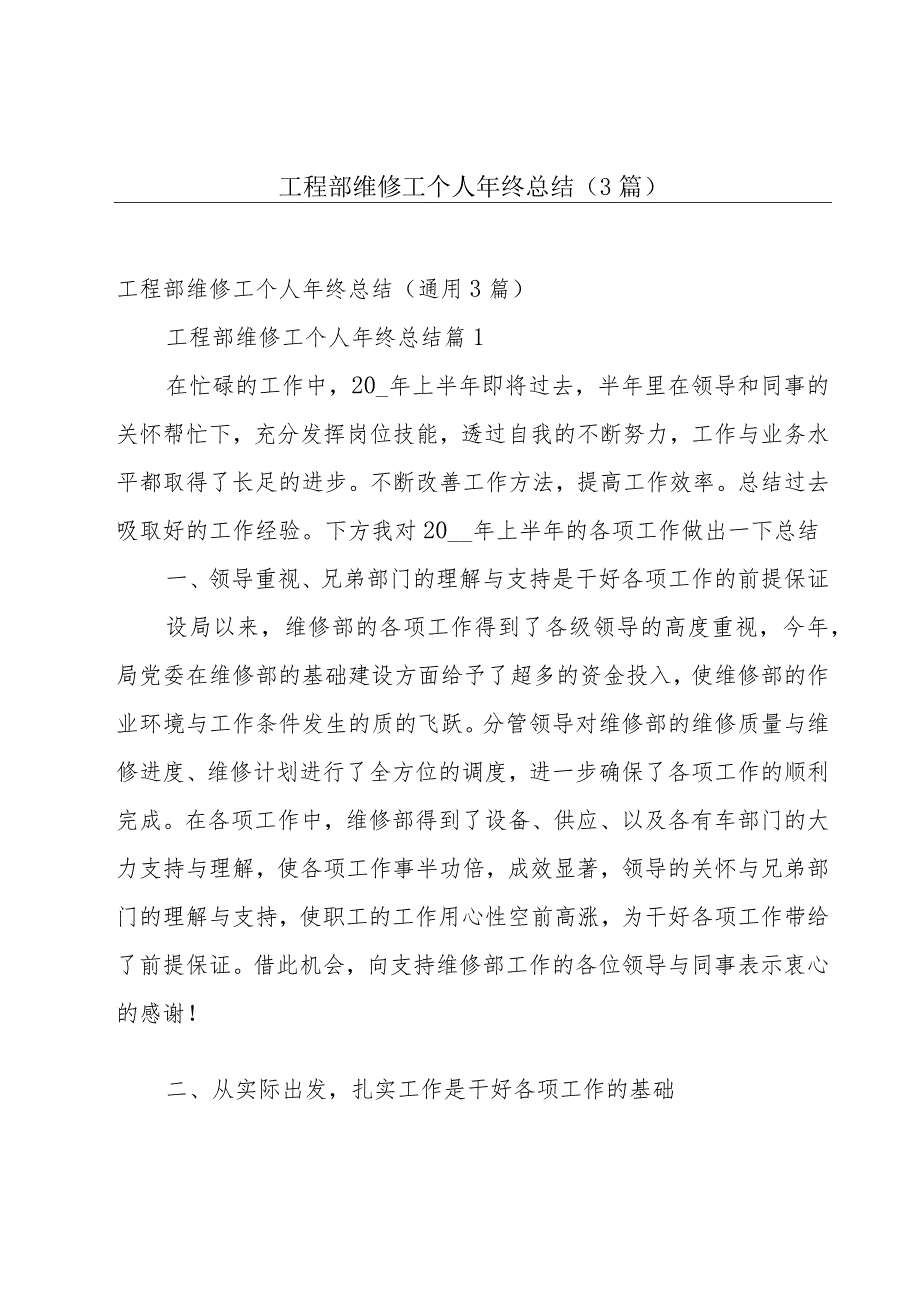 工程部维修工个人年终总结（3 篇）
工程部维修工个人年终总结（通用 3 篇）
工程部维修工个人年终总结篇 1
在忙碌的工作中，20_年上半年即将过去，半年里在领导和同事的
关怀帮忙下，充分发挥岗位技能，透过自我的不断努力，工作与业务水
平都取得了长足的进步。不断改善工作方法，提高工作效率。总结过去
吸取好的工作经验。下方我对 20__年上半年的各项工作做出一下总结
一、领导重视、兄弟部门的理解与支持是干好各项工作的前提保证
设局以来，维修部的各项工作得到了各级领导的高度重视，今年，
局党委在维修部的基础建设方面给予了超多的资金投入，使维修部的作
业环境与工作条件发生的质的飞跃。分管领导对维修部的维修质量与维
修进度、维修计划进行了全方位的调度，进一步确保了各项工作的顺利
完成。在各项工作中，维修部得到了设备、供应、以及各有车部门的大
力支持与理解，使各项工作事半功倍，成效显著，领导的关怀与兄弟部
门的理解与支持，使职工的工作用心性空前高涨，为干好各项工作带给
了前提保证。借此机会，向支持维修部工作的各位领导与同事表示衷心
的感谢！
二、从实际出发，扎实工作是干好各项工作的基础